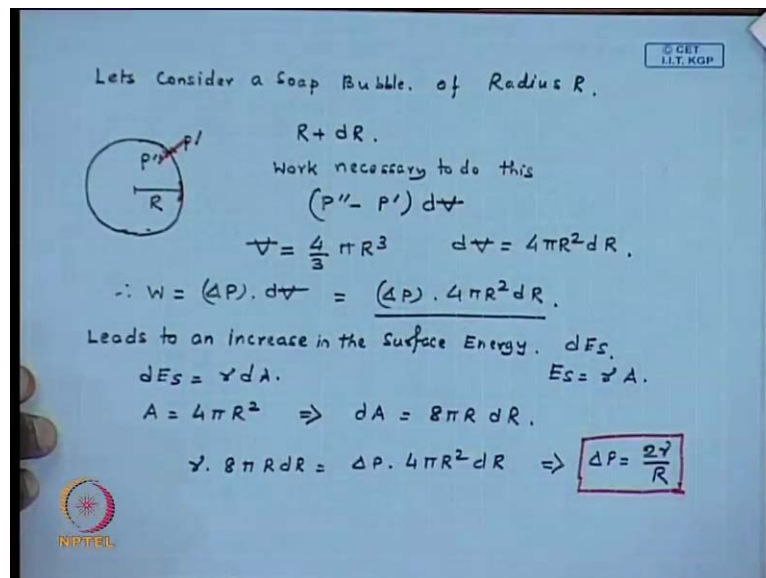 © CET
I.I.T. KGP
Lets Consider a Soap Bubble. of Radius R.
R + dR.
P" P'
Work necessary to do this
R
(P" - P') dV
V = 4/3 πR³ dV = 4πR²dR.
∴ W = (ΔP). dV = (ΔP). 4πR²dR.
Leads to an increase in the Surface Energy. dEs.
dEs = γdA. Es = γA.
A = 4πR² ⇒ dA = 8πR dR.
γ. 8πRdR = ΔP. 4πR²dR ⇒ ΔP = 2γ/R
NPTEL